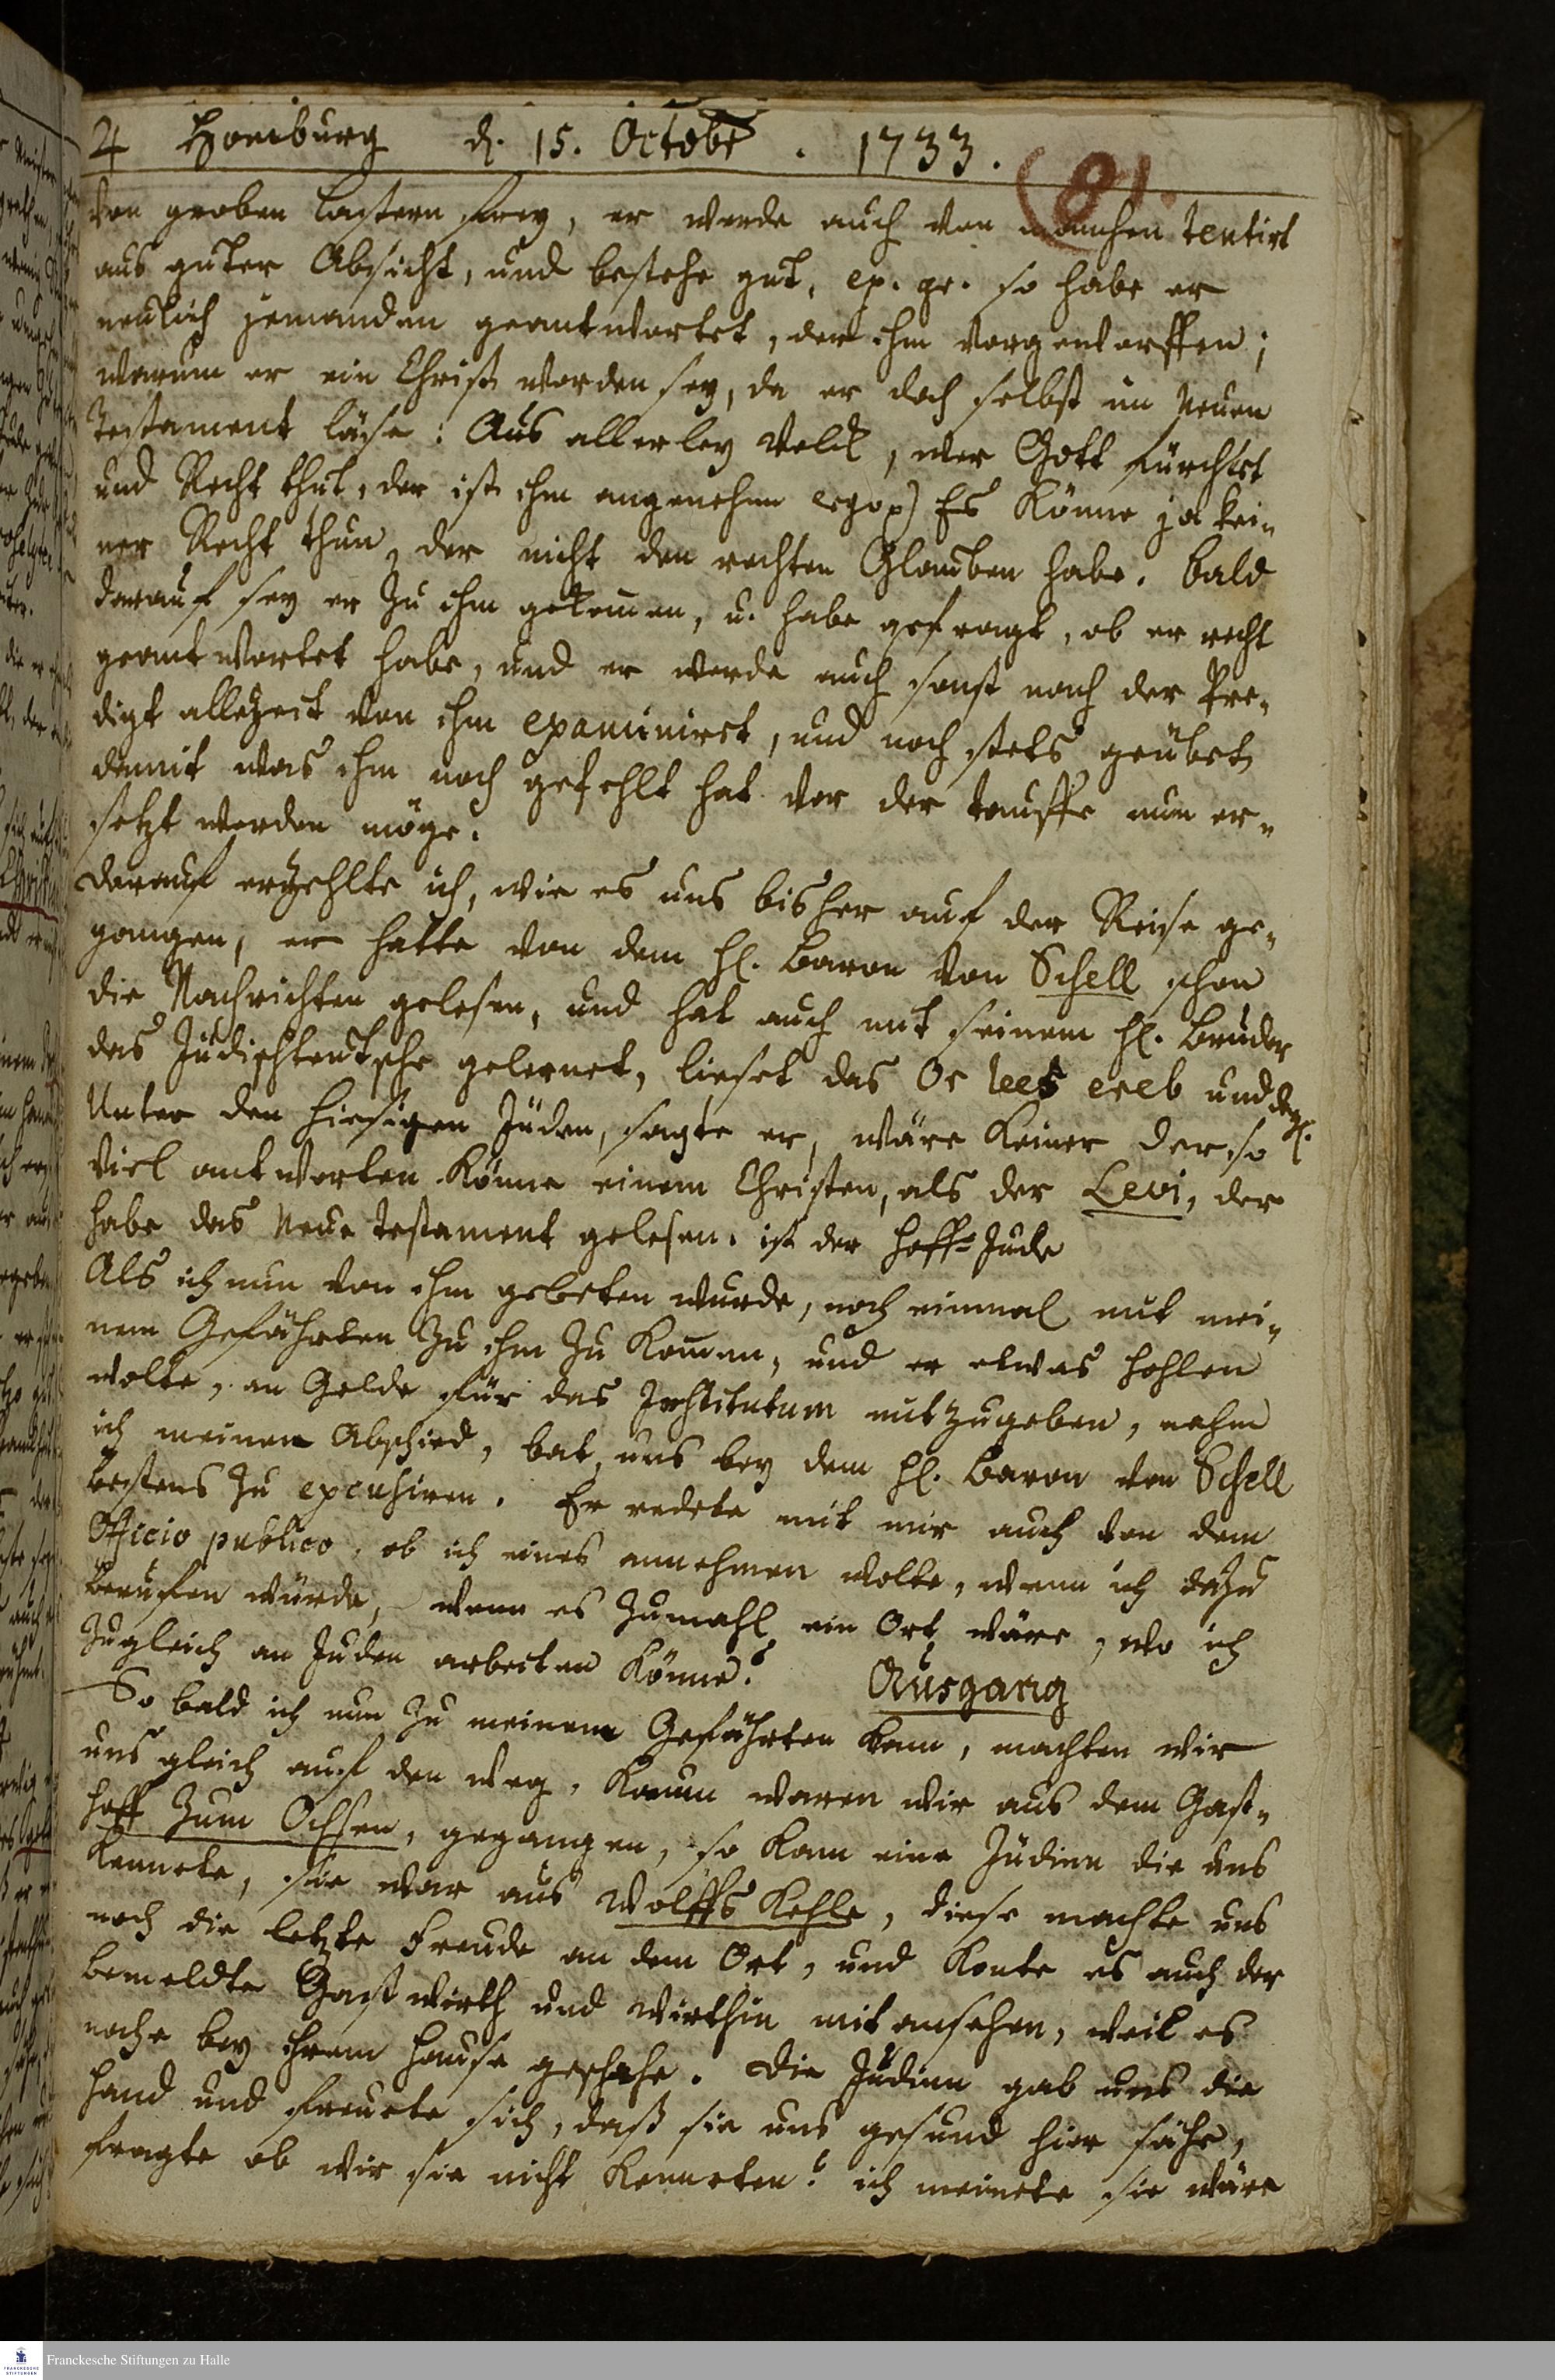 ♃ Homburg d. 15. Octobr. 1733.
(81.
von groben Lastern frey, er werde auch von manchen tentirt
aus guter Absicht, und bestehe gut, ex. gr. so habe er
neulich jemanden geantwortet, der ihm vorgeworffen;
warum er ein Christ worden sey, da er doch selbst im Neuen
Testament läse: Aus allerley Volck, wer Gott fürchtet
und Recht thut, der ist ihm angenehm ergo) Es könne ja kei-
ner Recht thun, der nicht den rechten Glauben habe. Bald
darauf sey er zu ihm gekommen, u. habe gefragt, ob er recht
geantwortet habe, und er werde auch sonst nach der Pre-
digt allezeit von ihm examiniret, und noch stets geübet,
damit was ihm noch gefehlt hat vor der tauffe nun er-
setzt werden möge.
Darauf erzehlte ich, wie es uns bisher auf der Reise ge-
gangen, er hatte von dem H. Baron von Schell schon
die Nachrichten gelesen, und hat auch mit seinem H. Bruder
das Jüdischteutsche gelernet, lieset das Or leet ereb und dergl.
Unter den hiesigen Juden, sagte er, wäre keiner der so
viel antworten könne einem Christen, als der Levi, der
habe das Neue Testament gelesen. ist der Hoff-Jude
Als ich nun von ihm gebeten wurde, noch einmal mit mei-
nem Gefährten zu ihm zu kommen, und er etwas hohlen
wolte, an Gelde für das Institutum mitzugeben, nahm
ich meinen Abschied, bat, uns bey dem H. Baron von Schell
bestens zu excusiren. Er redete mit mir auch von dem
Officio publico, ob ich eines annehmen wolte, wenn ich dazu
beruffen würde, wenn es zumahl ein Ort wäre, wo ich
zugleich an Juden arbeiten könne? Ausgang
So bald ich nun zu meinem Gefährten kam, machten wir
uns gleich auf den Weg, kaum waren wir aus dem Gast-
hoff zum Ochsen, gegangen, so kam eine Jüdinn die uns
kennete, sie war aus Wolffs Kehle, diese machte uns
noch die letzte Freude an dem Ort, und konte es auch der
bemeldte Gastwirth und Wirthin mit ansehen, weil es
nahe bey ihrem Hause geschahe. Die Jüdinn gab uns die
Hand und freuete sich, daß sie uns gesund hier sähe,
fragte ob wir sie nicht kenneten? ich meinete sie wäre
Franckesche Stiftungen zu Halle